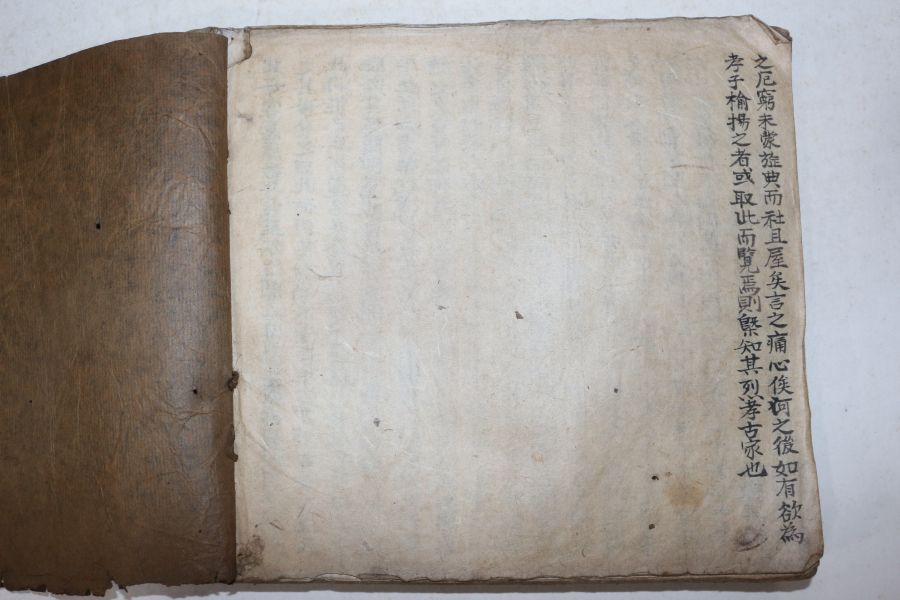 之厄窮未蒙旌典而社且屋矣言之痛心俟河之後如有欲為
孝子揄揚之者或取此而覽焉則槩知其烈孝古家也